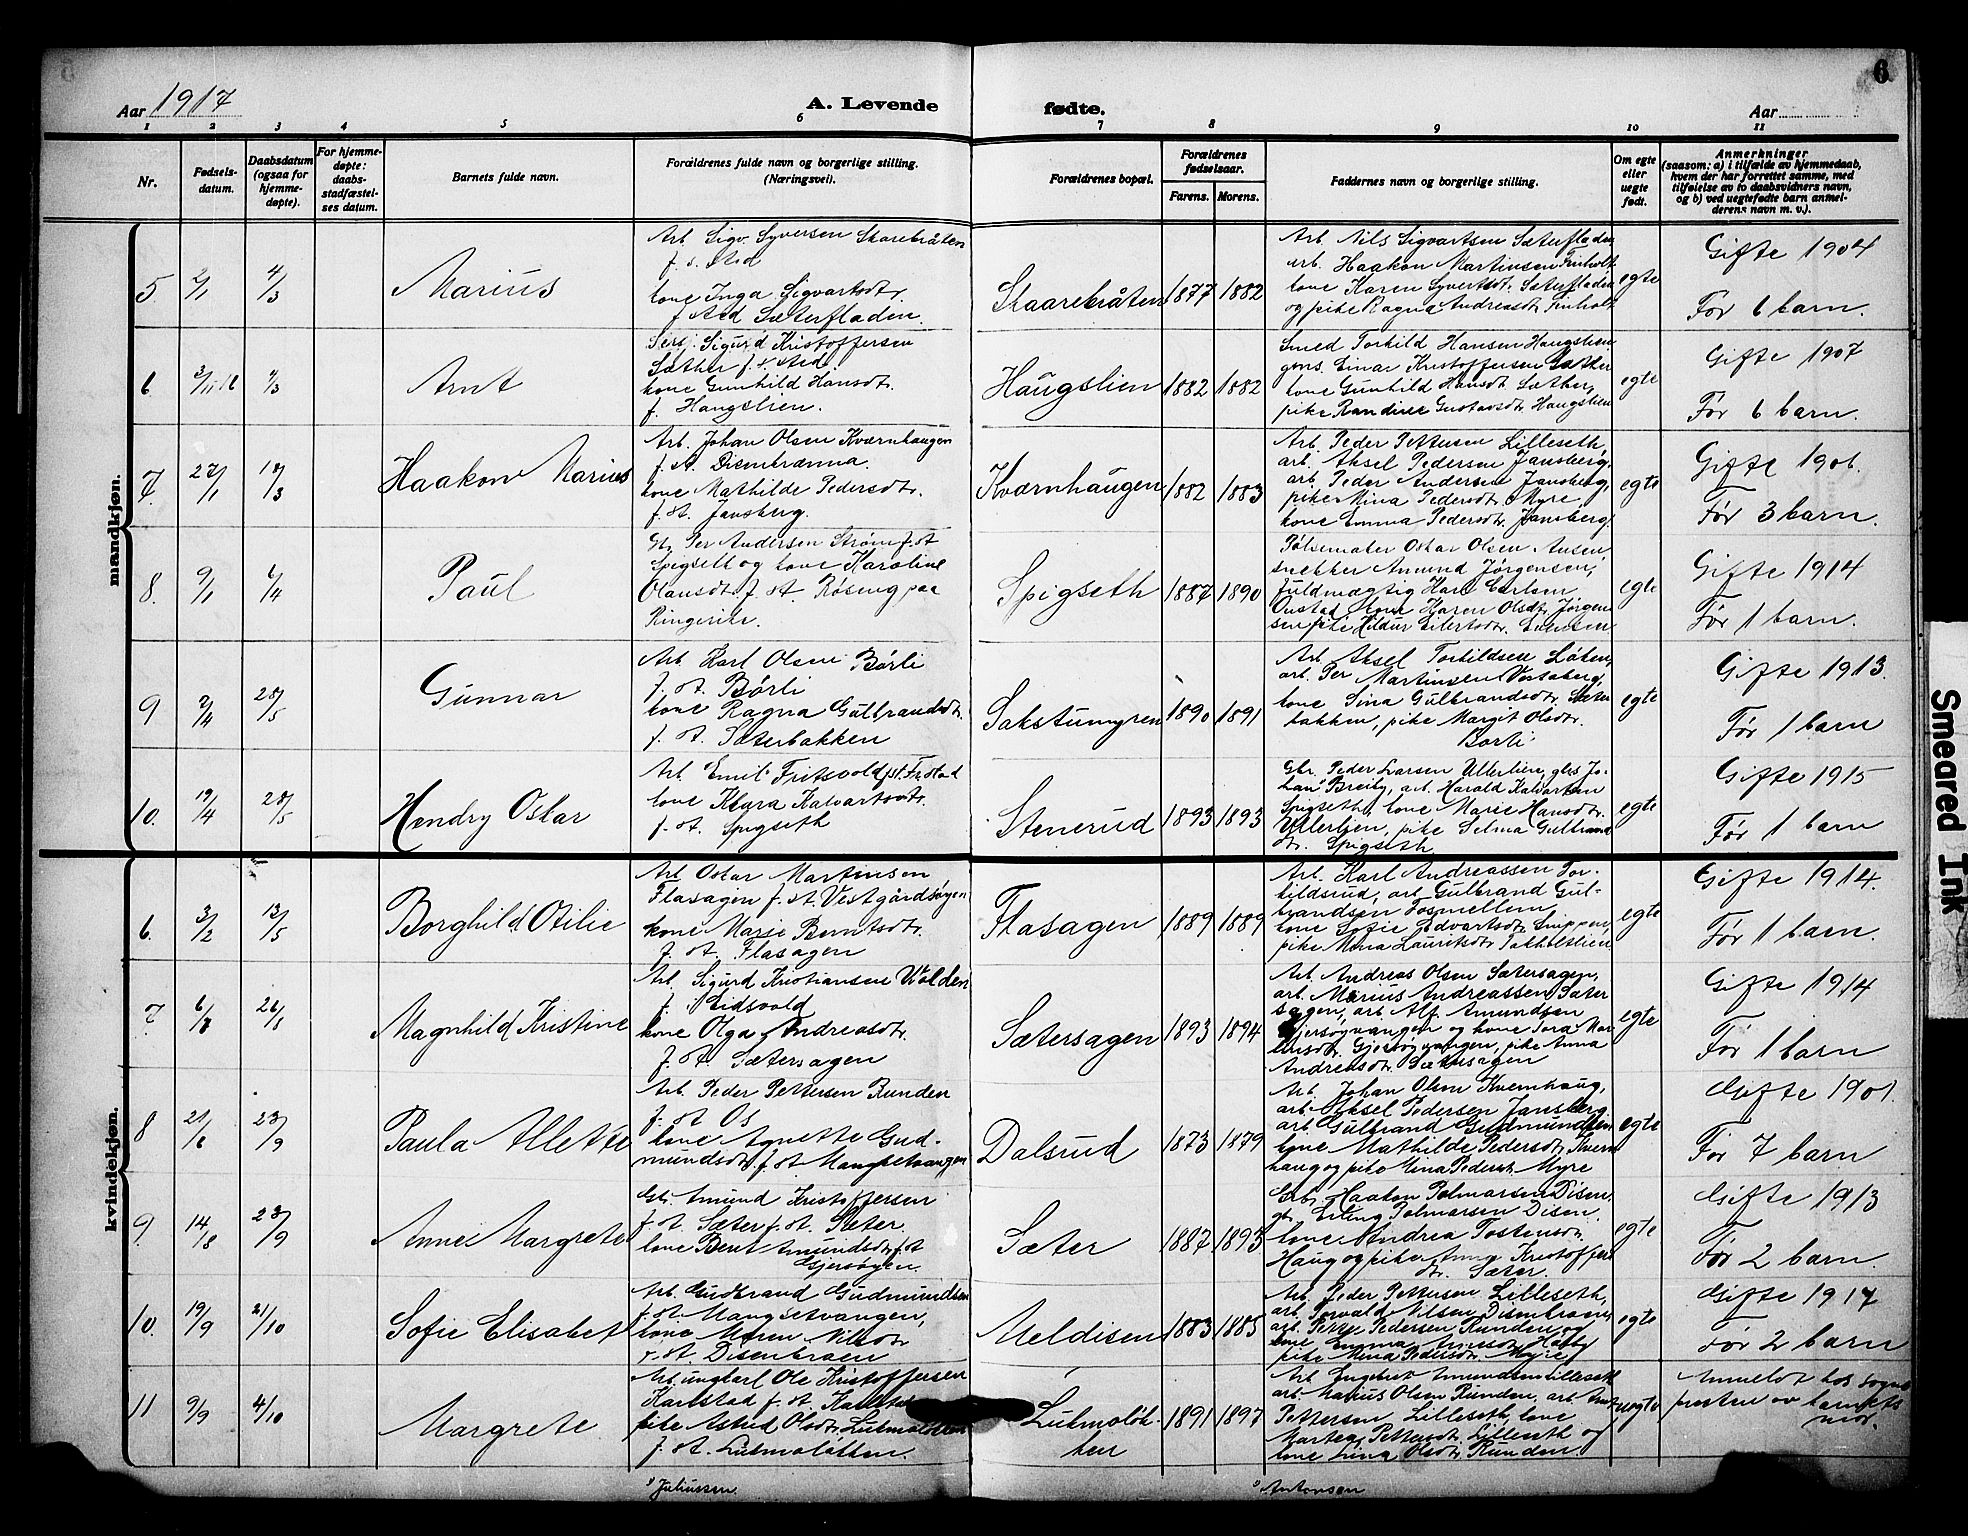 6
Aar 1917
A. Levende
fødte.
Aar
1 2 3 4 5 6 7 8 9 10 11
Nr.
Fødsels-
datum.
Daabsdatum
(ogsaa for
hjemme-
døpte).
For hjemme-
døpte:
daabs-
stadfæstel-
ses datum.
Barnets fulde navn.
Forældrenes fulde navn og borgerlige stilling.
(Næringsvei).
Forældrenes bopæl.
Forældrenes
fødselsaar.
Farens. Morens.
Faddernes navn og borgerlige stilling.
Om egte
eller
uegte
født.
Anmerkninger
(saasom: a) i tilfælde av hjemmedaab,
hvem der har forrettet samme, med
tilføielse av to daabsvidners navn,
og b) ved uegtefødte barn anmel-
derens navn m. v.).
mandkjøn.
5 2/1 4/3
Marius
Arb. Sigv. Syversen Skarebråten
f. s. sted
kone Inga Sigvartsdtr.
f. sted Sæterfladen.
Skaarebråten 1877 1882
Arb. Nils Sigvartsen Sæterfladen
arb. Haakon Martinsen Finholt
kone Karen Syvertsdtr. Sæterfladen
og pike Ragna Andreasdtr. Finholt
egte
Gifte 1904
Før 6 barn.
6 3/11.16
Arnt
Serj. Sigurd Kristoffersen
Sæther f. s. sted
kone Gunhild Hansdtr.
f. Haugslien.
Haugslien 1882 1882
Smed Torkild Hansen Haugslien
gms. Einar Kristoffersen Sæther
kone Gunhild Hansdtr. Sæther,
pike Randine Gustavsdtr. Haugslien
egte
Gifte 1907
Før 6 barn.
7 27/1 18/3
Haakon Marius
Arb. Johan Olsen Kværnhaugen
f. st. Disenbrænna.
kone Mathilde Pedersdtr.
f. st. Jansberg.
Kværnhaugen 1882 1883
Arb. Peder Pettersen Lilleseth,
arb. Aksel Pedersen Jansberg,
arb. Peder Andersen Jansberg,
pike Mina Pedersdtr. Myre,
kone Emma Pedersdtr. Jansberg.
egte
Gifte 1906.
Før 3 barn.
8. 9/1 6/4
Paul
Per Andersen Strøm f. st
Spigseth og kone Karoline
Olausdtr. f. st. Røseng paa
Ringerike.
Spigseth 1887 1890
Pølsemaker Oskar Olsen
snekker Amund Jørgensen,
fuldmægtig Hans Carlsen
kone Karen Olsdtr. Jørgen
sen, pike Hildur Eilertsdtr.
egte
Gifte 1914
Før 1 barn.
9 2/4 28/5
Gunnar
Arb. Karl Olsen Børli
f. st. Børli
kone Ragna Gulbrandsdtr.
f. st. Sæterbakken
Sakstumyren 1890 1891
Arb. Aksel Torkildsen Løken,
arb. Per Martinsen
kone Lina Gulbrandsdtr. Sæter
bakken, pike Margit Olsdtr.
Børli
egte
Gifte 1913.
Før 1 barn
10. 19/4 28/5
Hendry Oskar
Arb. Emil Fritsvold f. st. Fr.stad
kone Klara Kalvartsdtr.
f. st. Spigseth
Stenerud 1893 1893
Gbr. Peder Larsen Ullerlien, gbs Jo-
han Breiby, arb. Harald Kalvartsen
Spigseth, kone Marie Hansdtr.
Ullerlien, pike Selma Gulbrand
dtr. Spigseth
egte
Gifte 1915
Før 1 barn
kvindekjøn.
6. 3/2 13/5
Borghild Otilie
Arb. Oskar Martinsen
Flasagen f. st. Vestgårdsøgen
kone Marie Berntsdtr.
f. st. Flasagen
Flasagen 1889 1889
Arb. Karl Andreassen Tor-
kildsrud, arb. Gulbrand Gul-
brandsen Fosmellem,
kone Sofie Edvartsdtr.
pike Mina Lauritsdtr.
egte
Gifte 1914.
Før 1 barn.
7
Magnhild Kristine
Arb. Sigurd Kristiansen Wolden
f. i Eidsvold
kone Olga Andreasdtr.
f. st. Sætersagen
Sætersagen 1893 1894
Arb. Andreas Olsen Sætersagen,
arb. Marius Andreassen Sæter
sagen, arb. Alf Amundsen
Gjersøyvangen og kone Tora Mar
tinsdtr. Gjersøyvangen, pike Anna
Andreasdtr. Sætersagen
egte
Gifte 1914
Før 1 barn
8 21/6 23/9
Paula Allette
Arb. Peder Pettersen Runden
f. st Os
kone Agnette Gud-
mundsdtr. f. st Mangsetvangen
Dalsrud 1873 1879
Arb. Johan Olsen Kvernhaug,
arb. Aksel Pedersen Jansberg.
arb. Gulbrand Gudmundsen
kone Mathilde Pedersdtr. Kvern
haug og pike Mina Pedersdtr. Myre
egte
Gifte 1901.
Før 7 barn
9. 14/8 23/9
Anne Margrete
Gbr. Amund Kristoffersen
f. st. Sæter f. st. Sæter.
kone Berit Amundsdtr. f. st
Gjersøgen.
Sæter 1887 1893
Gbr. Haakon Polmarsen Disen,
gbr. Erling Polmarsen Disen.
kone Andrea Tostensdtr.
Haug og pike Anna Kristoffers
dtr. Sæter.
egte
Gifte 1913
Før 2 barn.
10. 19/9 21/10
Sofie Elisabet
Arb. Gudbrand Gudmundsen
f. st. Mangsetvangen,
kone Maren Nilsdtr.
f. st. Disenbraen
Meldisen 1883 1885
Arb. Peder Pettersen Lilleseth,
arb. Torvald Nilsen Disenbraen,
arb. Petter Pedersen Runden og
pike Mina Pedersdtr. Myre
egte
Gifte 1917
Før 2 barn
11 9/9 4/10
Margrete
Arb. ungkarl Ole Kristoffersen
Karlstad f. st. Karlstad
pike Astrid Olsdtr. Lutmoløkken
f. st. Lutmoløkken.
Lutmoløk-
ken
1891 1897
Arb. Engebret Amundsen Lilleseth
arb. Marius Olsen Runden, arb.
Pettersen Lilleseth, kone
Martea Pettersdtr. Lilleseth og
kone Lina Olsdtr. Runden.
uegte
Anmeldt hos sogne
presten av barnets
mor.
Juliussen.
Antonsen
Smeared Ink